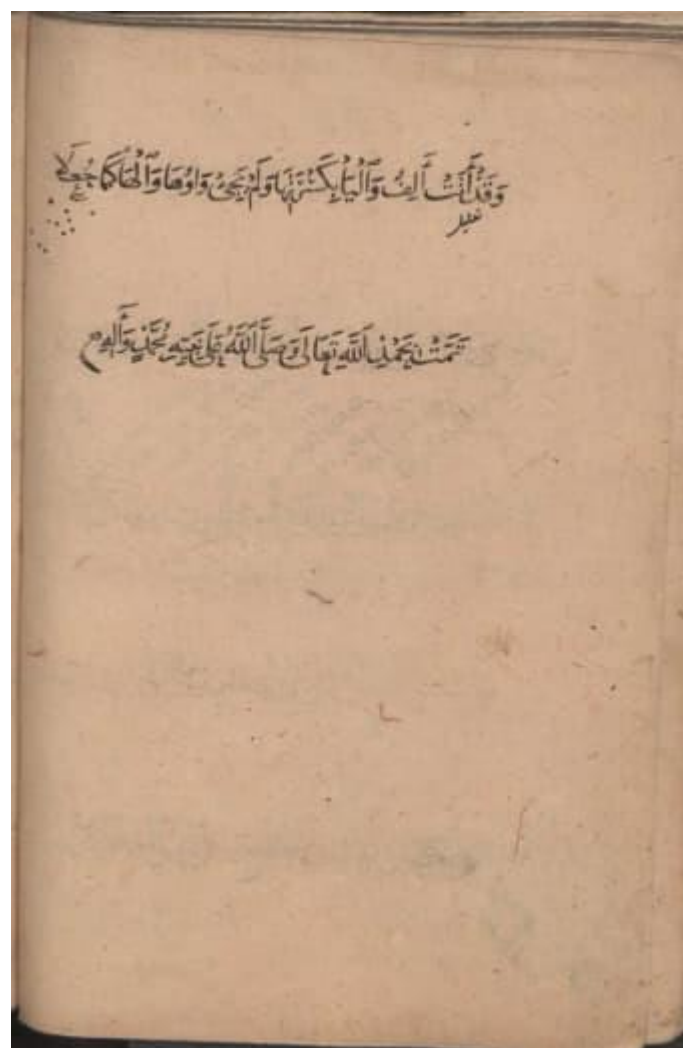 وَقَدْ أَتَتْ أَلِفٌ وَٱلْيَا بِكَثْرَتِهَا وَلَمْ يَجِئْ وَاوُهَا وَٱلْهَا كَمَا جُعِلَا
تَمَّتْ بِحَمْدِ ٱللَّهِ تَعَالَى وَصَلَّى ٱللَّهُ عَلَى نَبِيِّهِ مُحَمَّدٍ وَآلِهِ